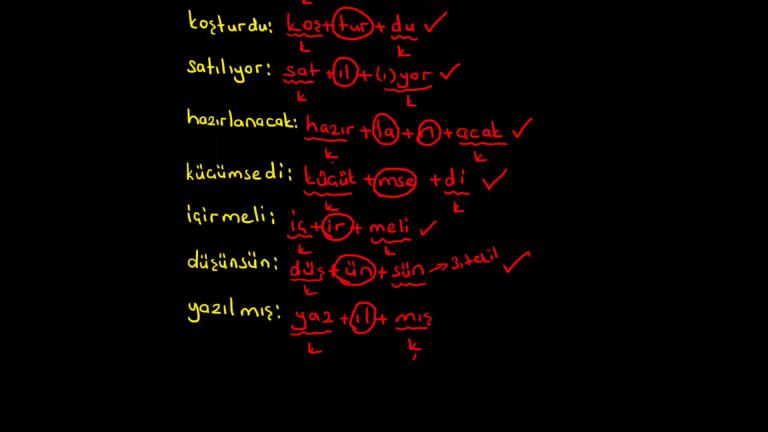 koşturdu: koş+tur+du ✓
k k
satılıyor: sat+ıl+(ı)yor ✓
k k
hazırlanacak: hazır+la+n+acak ✓
k k
küçümsedi: küçük+mse+di ✓
k k
içirmeli: iç+ir+meli ✓
k k
düşünsün: düş+ün+sün→3.tekil ✓
k
yazılmış: yaz+ıl+mış
k k